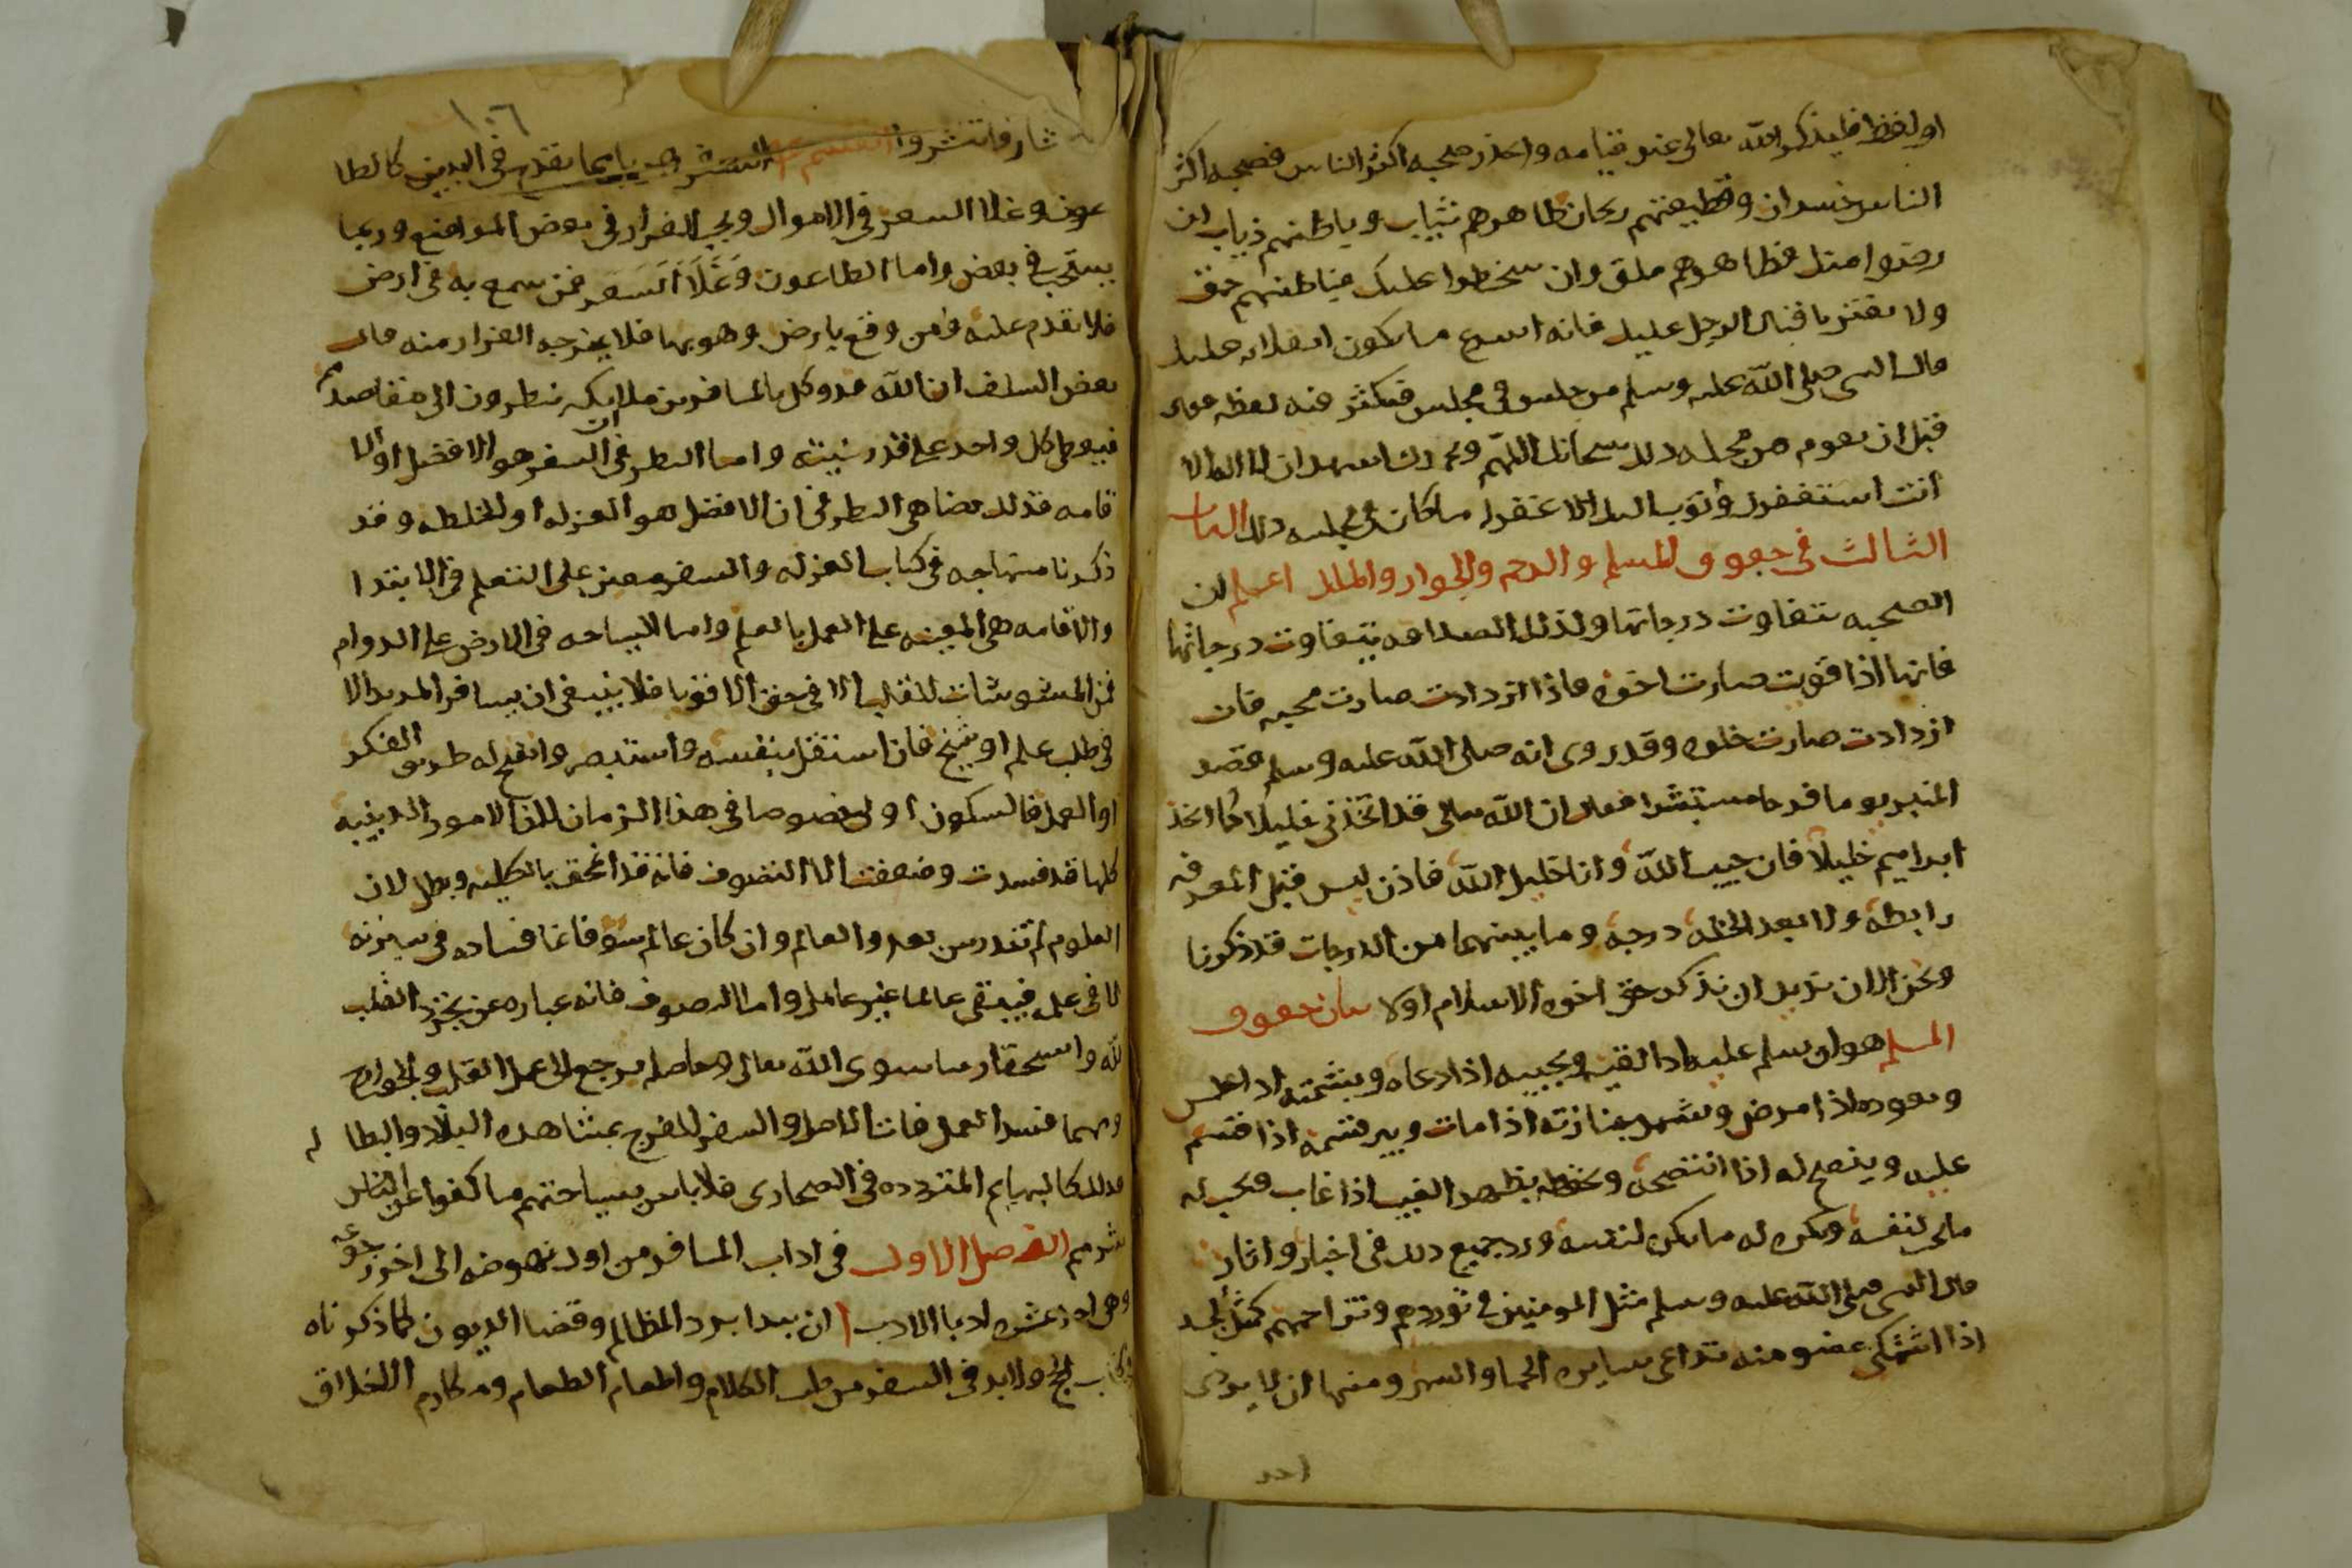 او لفظ فليذكر الله تعالى عند قيامه واحذر صحبه اكثر الناس فصحبه اكثر
الناس خسران وقطيعتهم رحان ظاهرهم ثياب وباطنهم ذياب ان
رضوا منك فظاهرهم ملق وان سخطوا عليك فباطنهم حنق
ولا تغتر باقبال الرجل عليك فانه اسرع ما يكون انقلابه عليك
قال النبى صلى الله عليه وسلم من جلس فى مجلس فيكثر فيه لغطه فقال
قبل ان يقوم من مجلسه ذلك سبحانك اللهم وبحمدك اشهد ان لا اله الا
أنت استغفرك وأتوب اليك الا غفر له ما كان فى مجلسه ذلك الباب
الثالث فى حقوق المسلم والرحم والجوار والملك اعلم ان
الصحبه تتفاوت درجاتها وكذلك الصداقه يتفاوت درجاتها
فانها اذا قويت صارت اخوه فاذا ازدادت صارت محبه فان
ازدادت صارت خله وقد روى انه صلى الله عليه وسلم قصد
المنبر يوما فرحا مستبشرا فقال ان الله تعالى قد اتخذنى خليلا كما اتخذ
ابراهيم خليلا فان حبيب الله وانا خليل الله فاذن ليس قبل المعرفه
رابطه ولا بعد الخله درجه وما بينهما من الدرجات قد ذكرنا
ونحن الان نريد ان نذكر حق اخوه الاسلام اولا بيان حقوق
المسلم هو ان يسلم عليه اذا لقيه ويجيبه اذا دعاه ويشمته اذا عطس
ويعوده اذا مرض ويشهد جنازته اذا مات ويبر قسمه اذا قسم
عليه وينصح له اذا انتصحه ويحفظه بظهر الغيب اذا غاب ويحب له
ما يحب لنفسه ويكره له ما يكره لنفسه ورد جميع ذلك فى اخبار واثار
قال النبى صلى الله عليه وسلم مثل المومنين فى توددهم وتراحمهم كمثل الجسد
اذا اشتكى عضو منه تداعى سايره الحما والسهر ومنها ان لا يوذى
احد
١٠٦
فانتشروا القسم هرب بابما يقدح فى البدن كالطا
عون وغلا السعر فى الاموال ويجب الفرار فى بعض المواضع وربما
يستحب فى بعض واما الطاعون وغلا السعر فمن سمع به فى ارض
فلا يقدم عليه ومن وقع بارض وهو بها فلا يخرجه الفرار منه قال
بعض السلف ان الله قد وكل بالمسافرين ملايكه ينظرون الى مقاصدهم
فيعطى كل واحد على قدر نيته واما النظر فى ان السفر هو الافضل او الا
قامه فذلك يضاهى النظر فى ان الافضل هو العزله او المخلطه وقد
ذكرنا منهاجه فى كتاب العزله والسفر معين على التعلم فى الابتدا
والاقامه هى المعينه على العمل بالعلم واما السياحه فى الارض على الدوام
فمن المشوشات للقلب الا فى حق الاقويا فلا ينبغى ان يسافر المريد الا
فى طلب علم او شيخ فان استقل بنفسه واستبصر وانفتح له طريق الفكر
او العمل فالسكون اولى خصوصا فى هذا الزمان لان الامور الدينيه
كلها قد فسدت وضعفت الا التصوف فانه قد انمحق بالكليه وبطل لان
العلوم لم تندرس بعد والعالم وان كان عالم سو فانما فساده فى سيرته
لا فى علمه فيبقى عالما غير عامل واما التصوف فانه عباره عن تجرد القلب
لله واستحقار ما سوى الله تعالى وحاصله يرجع الى عمل القلب والجوارح
ومهما فسد العمل فات الاصل والسفر للتفرج بمشاهده البلاد والبطا له
فذلك كالبهايم المتردده فى الصحارى فلا باس بسياحتهم ما كفوا عن الناس
شرهم الفصل الاول فى اداب المسافر من اول نهوضه الى اخر رجوعه
وهى احد عشره ادبا الادب ا ان يبدا برد المظالم وقضا الديون كما ذكرناه
فى كتاب الحج ولا بد فى السفر من طيب الكلام واطعام الطعام ومكارم الاخلاق